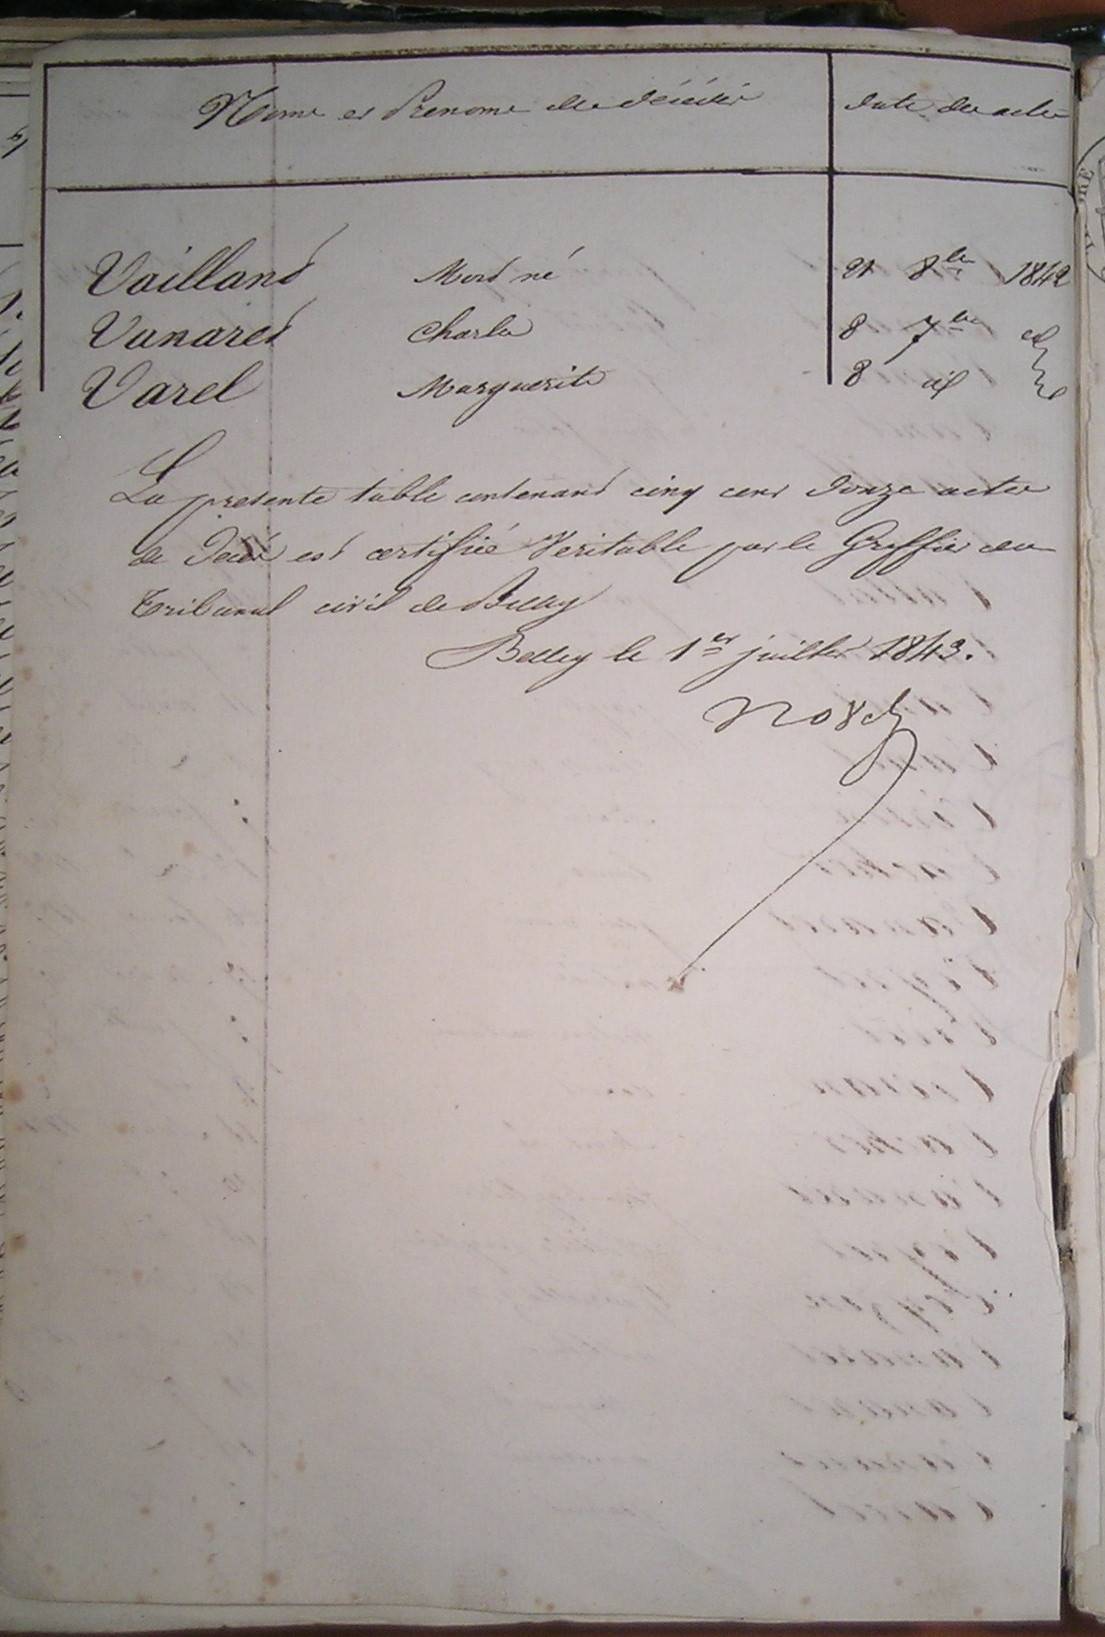 Noms et Prenoms des décédés date des actes
Vailland Mord né 21 8bre 1842
Vanared Charles 8 7bre id
Varel Marguerite 8 id id
La presente table contenant cinq cent douze actes
de Décès est certifiée Veritable par le Greffier du
Tribunal civil de Belley
Belley le 1er juillet 1843.